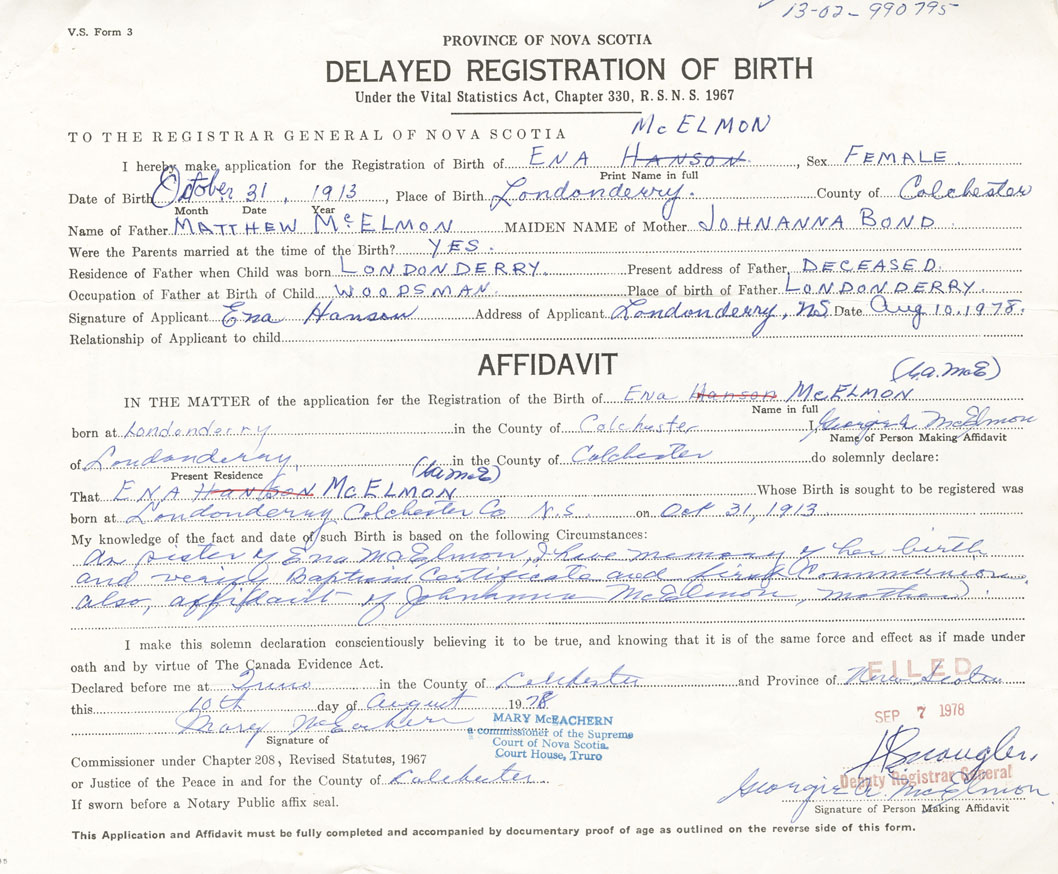 13-02-990795
V.S. Form 3
PROVINCE OF NOVA SCOTIA
DELAYED REGISTRATION OF BIRTH
Under the Vital Statistics Act, Chapter 330, R.S.N.S. 1967
McELMON
TO THE REGISTRAR GENERAL OF NOVA SCOTIA
I hereby make application for the Registration of Birth of ENA HANSON, Sex FEMALE
Print Name in full
Date of Birth October 31, 1913, Place of Birth Londonderry. County of Colchester
Month Date Year
Name of Father MATTHEW McELMON MAIDEN NAME of Mother JOHNANNA BOND
Were the Parents married at the time of the Birth? YES.
Residence of Father when Child was born LONDONDERRY. Present address of Father DECEASED.
Occupation of Father at Birth of Child WOODSMAN. Place of birth of Father LONDONDERRY.
Signature of Applicant Ena Hanson Address of Applicant Londonderry, NS. Date Aug 10, 1978.
Relationship of Applicant to child
AFFIDAVIT
(G.A. McE)
IN THE MATTER of the application for the Registration of the Birth of Ena Hanson McELMON
Name in full
born at Londonderry in the County of Colchester I, Georgie A McElmon
Name of Person Making Affidavit
of Londonderry, in the County of Colchester do solemnly declare:
Present Residence (G.A. McE)
That ENA HANSON McELMON Whose Birth is sought to be registered was
born at Londonderry Colchester Co N.S. on Oct 31, 1913
My knowledge of the fact and date of such Birth is based on the following Circumstances:
As sister of Ena McElmon, I have memory of her birth
and verify Baptism Certificate and first Communion
also, affidavit of Johnanna McElmon, mother.
I make this solemn declaration conscientiously believing it to be true, and knowing that it is of the same force and effect as if made under
oath and by virtue of The Canada Evidence Act.
FILED
Declared before me at Truro in the County of Colchester and Province of Nova Scotia
this 10th day of August 1978
SEP 7 1978
Mary McEachern
MARY McEACHERN
a commissioner of the Supreme
Court of Nova Scotia.
Court House, Truro
Signature of
Commissioner under Chapter 208, Revised Statutes, 1967
or Justice of the Peace in and for the County of Colchester
Deputy Registrar General
Georgie A. McElmon
If sworn before a Notary Public affix seal.
Signature of Person Making Affidavit
This Application and Affidavit must be fully completed and accompanied by documentary proof of age as outlined on the reverse side of this form.